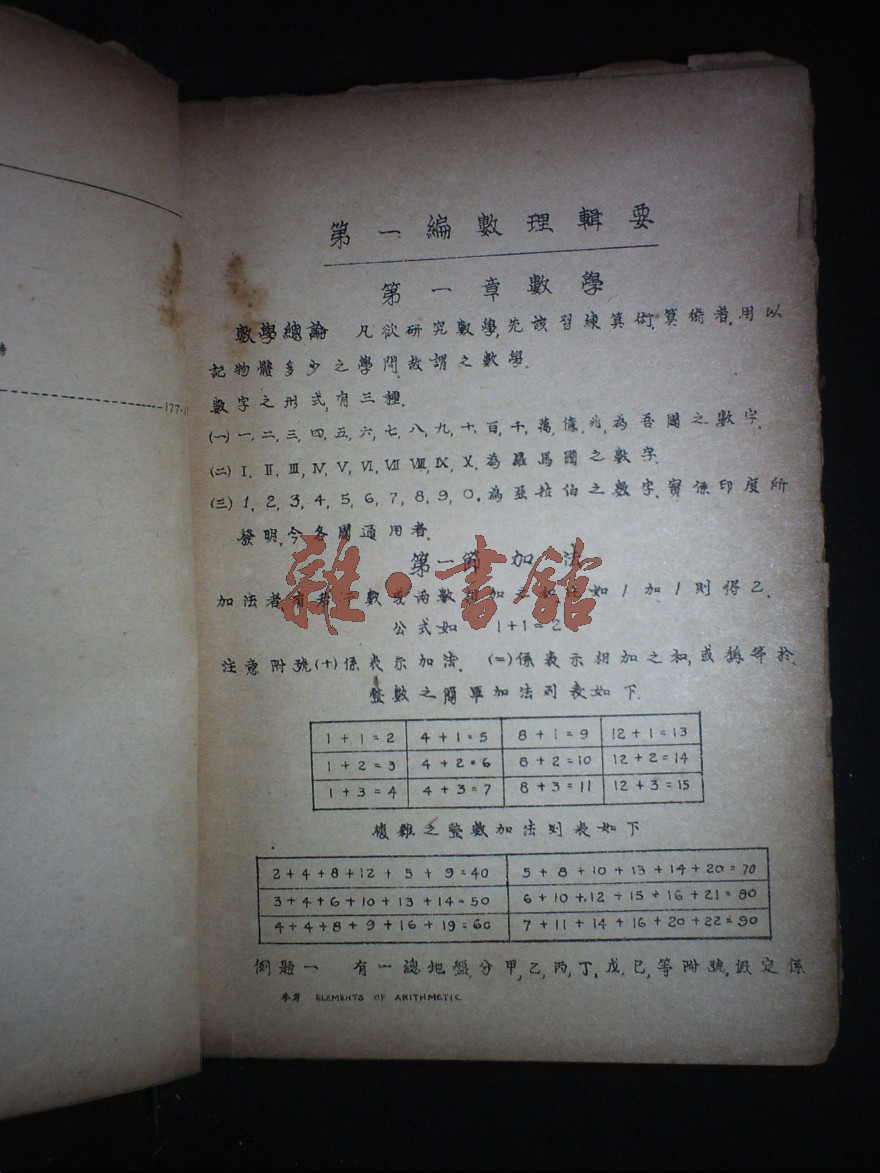 177
第一編數理輯要
第一章數學
數學總論 凡欲研究數學,先該習練算術,算術者,用以
記物體多少之學問,故謂之數學.
數字之形式,有三種.
(一)一,二,三,四,五,六,七,八,九,十,百,千,萬,億,兆,為吾國之數字.
(二) I, II, III, IV, V, VI, VII VIII, IX, X,為羅馬國之數字.
(三) 1, 2, 3, 4, 5, 6, 7, 8, 9, 0,為亞拉伯之數字,實係印度所
發明,今各國通用者.
第一節 加法
加法者,有若干數或兩數相加之如 1 加 1 則得 2.
公式如 1+1=2
注意附號(+)係表示加法. (=)係表示相加之和,或稱等於.
整數之簡單加法列表如下.
1+1=2 4+1=5 8+1=9 12+1=13
1+2=3 4+2=6 8+2=10 12+2=14
1+3=4 4+3=7 8+3=11 12+3=15
複雜之整數加法列表如下
2+4+8+12+5+9=40 5+8+10+13+14+20=70
3+4+6+10+13+14=50 6+10+12+15+16+21=80
4+4+8+9+16+19=60 7+11+14+16+20+22=90
例題一 有一總地盤,分甲,乙,丙,丁,戊,已,等附號,假定係
參考 ELEMENTS OF ARITHMETIC
雜·書館